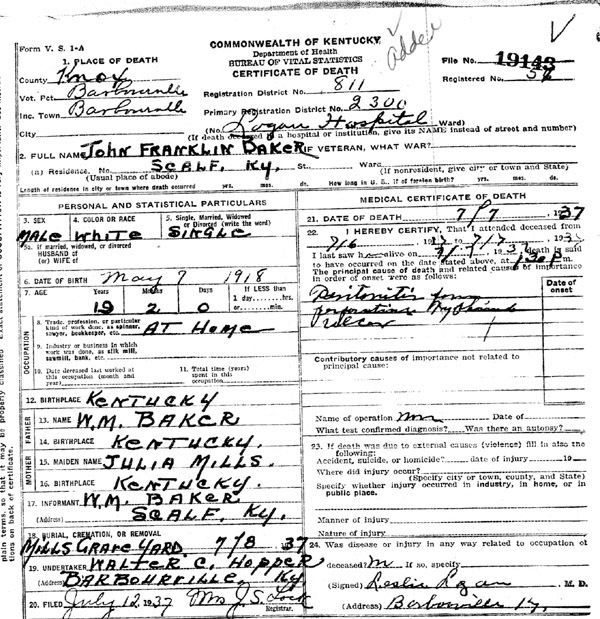 added
Form V. S. 1-A
COMMONWEALTH OF KENTUCKY
Department of Health
BUREAU OF VITAL STATISTICS
CERTIFICATE OF DEATH
File No. 19143
Registered No. 56
1. PLACE OF DEATH
County Knox
Vot. Pct. Barbourville
Inc. Town Barbourville
City
Registration District No. 811
Primary Registration District No. 2300
(No. Logan Hospital Ward)
(If death occurred in a hospital or institution, give its NAME instead of street and number)
2. FULL NAME JOHN FRANKLIN BAKER IF VETERAN, WHAT WAR?
(a) Residence. No. SCALF, KY. St. Ward
(Usual place of abode) (If nonresident, give city or town and State)
Length of residence in city or town where death occurred yrs. mos. ds. How long in U. S., if of foreign birth? yrs. mos. ds.
PERSONAL AND STATISTICAL PARTICULARS
3. SEX
MALE
4. COLOR OR RACE
WHITE
5. Single, Married, Widowed
or Divorced (write the word)
SINGLE
5a. If married, widowed, or divorced
HUSBAND of
(or) WIFE of
6. DATE OF BIRTH May 7 1918
7. AGE Years Months Days If LESS than
1 day hrs.
or min.
19 2 0
OCCUPATION
8. Trade, profession, or particular
kind of work done, as spinner,
sawyer, bookkeeper, etc. AT HOME
9. Industry or business in which
work was done, as silk mill,
sawmill, bank, etc.
10. Date deceased last worked at
this occupation (month and
year)
11. Total time (years)
spent in this
occupation
12. BIRTHPLACE KENTUCKY
FATHER
13. NAME W.M. BAKER
14. BIRTHPLACE KENTUCKY.
MOTHER
15. MAIDEN NAME JULIA MILLS.
16. BIRTHPLACE KENTUCKY.
17. INFORMANT W.M. BAKER
(Address) SCALF, KY.
18. BURIAL, CREMATION, OR REMOVAL
MILLS GRAVE YARD. 7/8 37
19. UNDERTAKER WALTER C. HOPPER
(Address) BARBOURVILLE, KY.
20. FILED July 12, 1937 Mrs J.S. Lock
Registrar.
MEDICAL CERTIFICATE OF DEATH
21. DATE OF DEATH 7/7 1937
22. I HEREBY CERTIFY, That I attended deceased from
7/6 1937 to 7/7 193
I last saw h alive on 7/7 1937 death is said
to have occurred on the date stated above, at 1:30 P m.
The principal cause of death and related causes of importance
in order of onset were as follows:
Date of
onset
Peritonitis from
perforating
ulcer
Contributory causes of importance not related to
principal cause:
Name of operation Date of
What test confirmed diagnosis? Was there an autopsy?
23. If death was due to external causes (violence) fill in also the
following:
Accident, suicide, or homicide? date of injury 19
Where did injury occur?
(Specify city or town, county, and State)
Specify whether injury occurred in industry, in home, or in
public place.
Manner of injury
Nature of injury
24. Was disease or injury in any way related to occupation of
deceased? If so, specify
(Signed) Leslie Logan M. D.
(Address) Barbourville Ky.
plain terms, so that it may be properly classified.
tions on back of certificate.